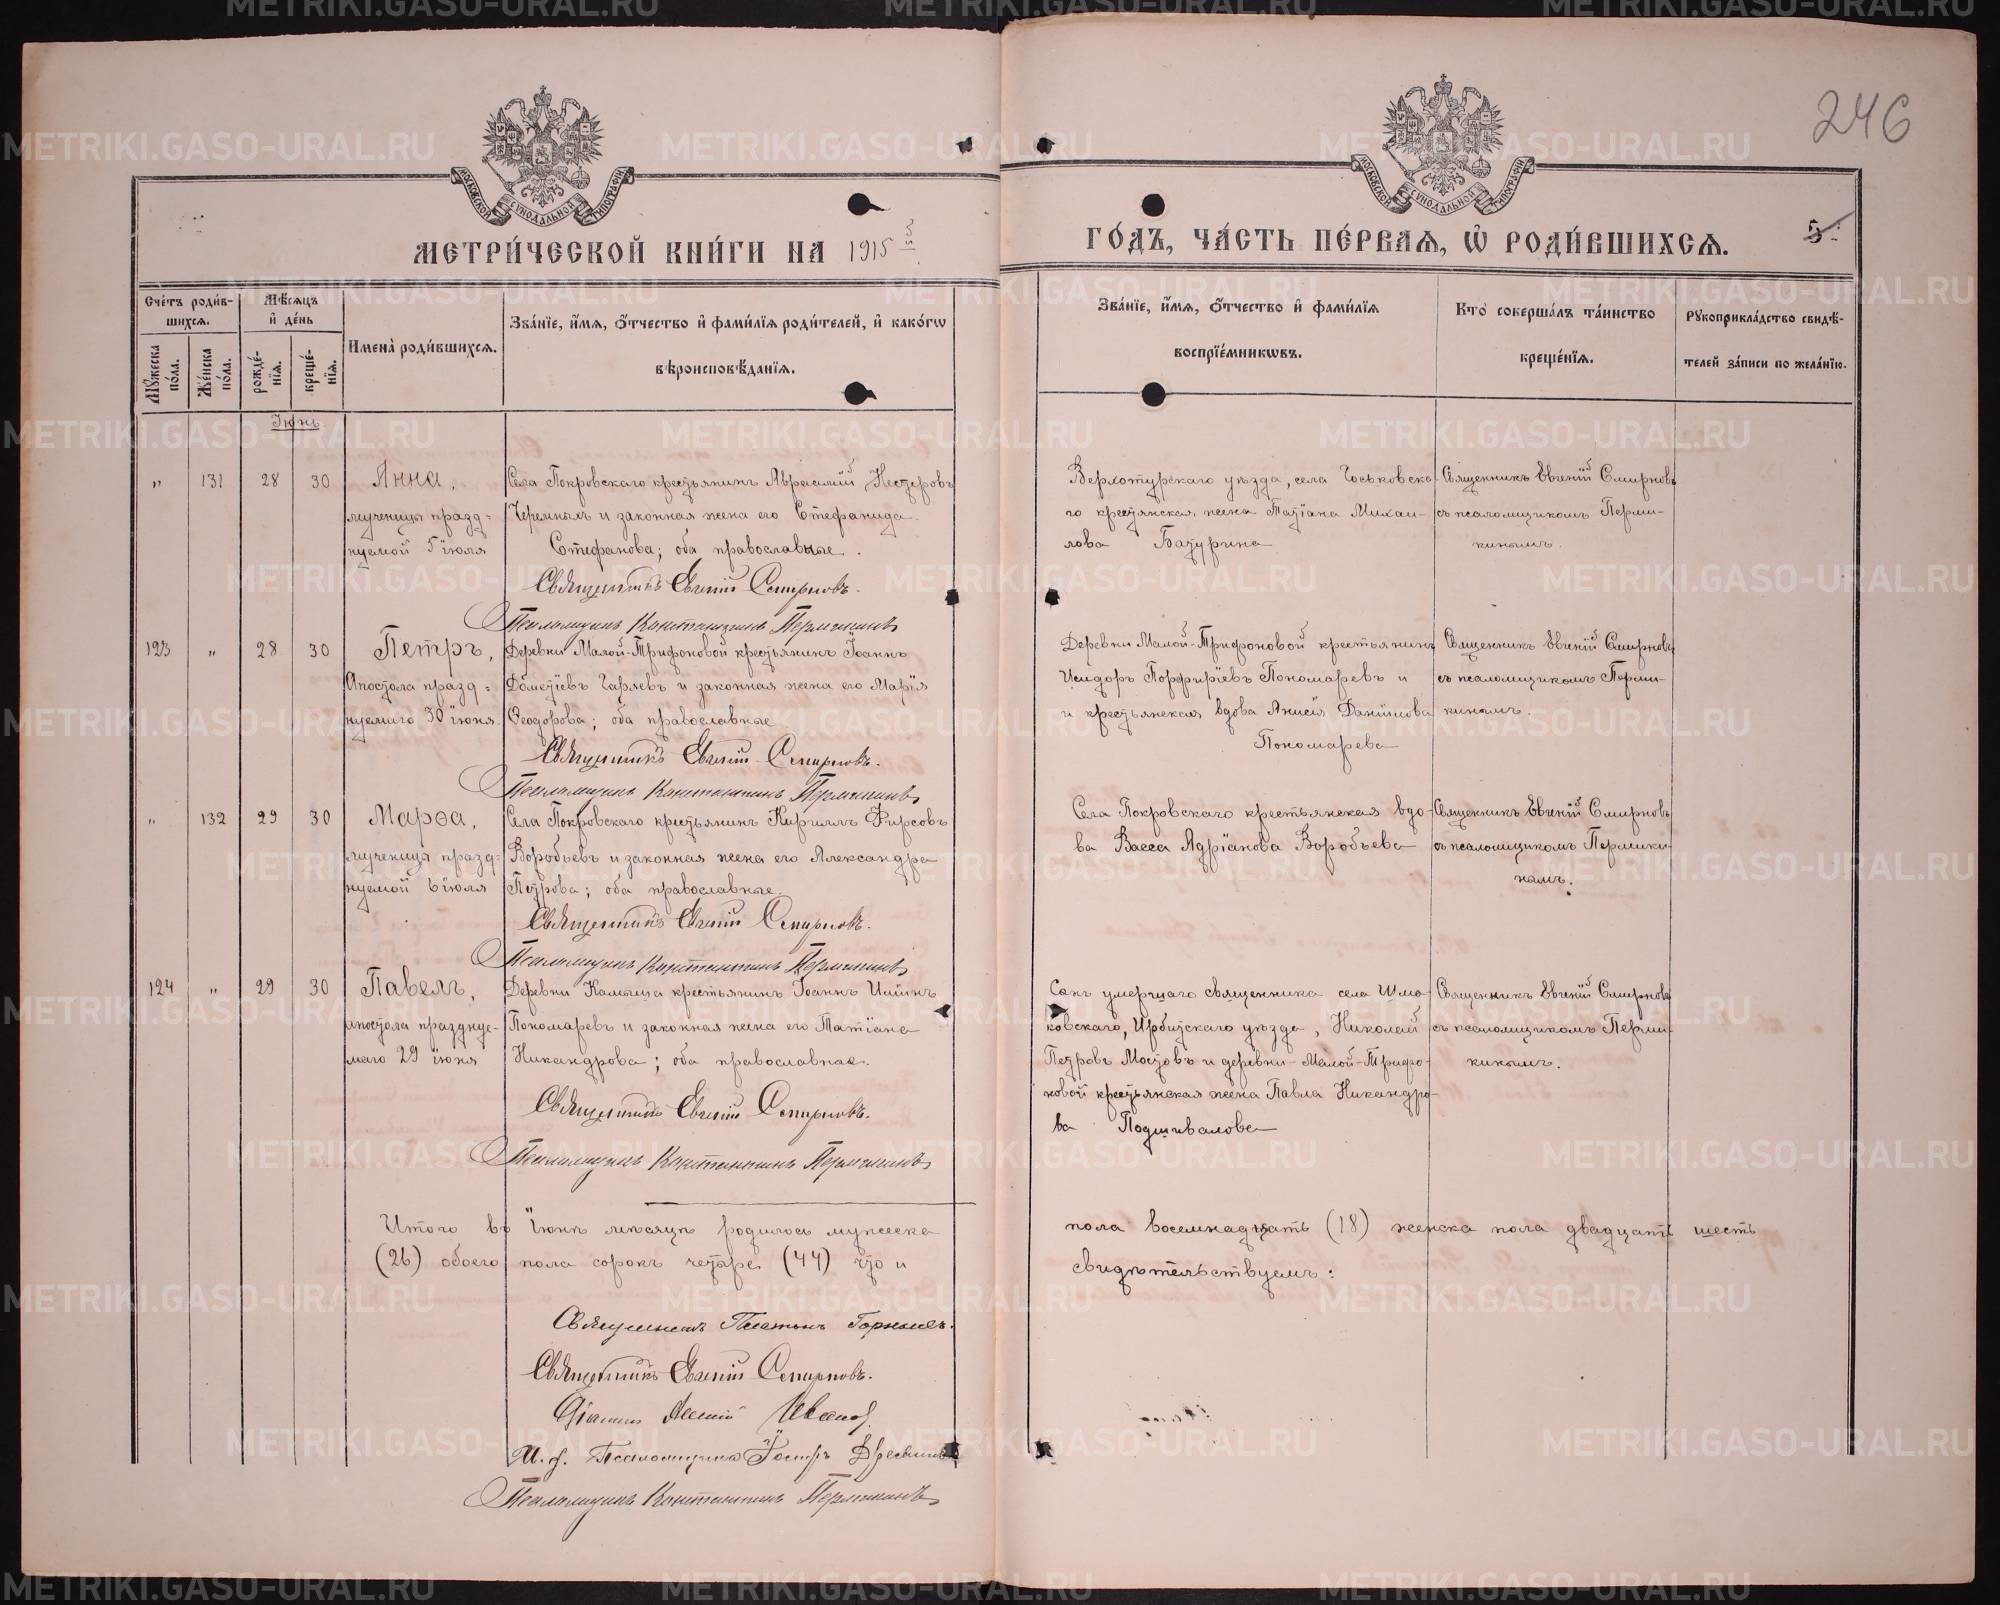 246
МЕТРИ́ЧЕСКОЙ КНИ́ГИ НА 1915 й
ГО́ДЪ, ЧА́СТЬ ПЕ́РВАѦ, Ѡ҆ РОДИ́ВШИХСѦ.
5
Сче́тъ роди́в-
шихсѧ.
Мѣ́сѧцъ
и҆ де́нь
Имена̀ роди́вшихсѧ.
Зва́нїе, и҆́мѧ, ѻ҆́тчество и҆ фами́лїѧ роди́телей, и҆ како́гѡ
вѣроисповѣ́данїѧ.
Мꙋ́жеска по́ла.
Же́нска по́ла.
рожде́-
нїѧ.
креще́-
нїѧ.
Зва́нїе, и҆́мѧ, ѻ҆́тчество и҆ фами́лїѧ
воспрїе́мникѡвъ.
Кто̀ соверша́лъ та́инство
креще́нїѧ.
Рꙋкоприкла́дство свидѣ́-
телей за́писи по жела́нїю.
Іюнь
" 131 28 30 Анна,
мученицы празд-
нуемой 5 іюля
Села Покровскаго крестьянинъ Аврамій Нестеровъ
Черемныхъ и законная жена его Стефанида
Стефанова; оба православные.
Священникъ Евгеній Смирновъ.
Псаломщикъ Константинъ Пермикинъ
Верхотурскаго уѣзда, села Тоськовска-
го крестьянская жена Татіана Михаи-
лова Батурина
Священникъ Евгеній Смирновъ
съ псаломщикомъ Перми-
кинымъ.
123 " 28 30 Петръ,
Апостола празд-
нуемаго 30 іюня.
Деревни Малой-Трифоновой крестьянинъ Іоаннъ
Дометіевъ Гаряевъ и законная жена его Марія
Ѳеодорова; оба православные
Священникъ Евгеній Смирновъ.
Псаломщикъ Константинъ Пермикинъ
Деревни Малой-Трифоновой крестьянинъ
Исидоръ Порфиріевъ Пономаревъ и
и крестьянская вдова Анисія Даніилова
Пономарева
Священникъ Евгеній Смирновъ
съ псаломщикомъ Перми-
кинымъ.
" 132 29 30 Марѳа,
мученицы празд-
нуемой 6 іюля
Села Покровскаго крестьянинъ Кириллъ Фирсовъ
Воробьевъ и законная жена его Александра
Петрова; оба православные.
Священникъ Евгеній Смирновъ.
Псаломщикъ Константинъ Пермикинъ
Села Покровскаго крестьянская вдо-
ва Васса Адріанова Воробьева
Священникъ Евгеній Смирновъ
съ псаломщикомъ Пермики-
нымъ.
124 " 29 30 Павелъ,
апостола празднуе-
маго 29 іюня
Деревни Камыша крестьянинъ Іоаннъ Иліинъ
Пономаревъ и законная жена его Татіана
Никандрова; оба православные.
Священникъ Евгеній Смирновъ.
Псаломщикъ Константинъ Пермикинъ
Сынъ умершаго священника села Шма-
ковскаго, Ирбитскаго уѣзда, Николай
Петровъ Мостовъ и деревни Малой-Трифо-
новой крестьянская жена Павла Никандро-
ва Подшивалова
Священникъ Евгеній Смирновъ
съ псаломщикомъ Перми-
кинымъ.
Итого въ іюнѣ мѣсяцѣ родилось мужска пола восемнадцать (18) женска пола двадцать шесть
(26) обоего пола сорокъ четыре (44) что и свидѣтельствуемъ:
Священникъ Платонъ Горныхъ.
Священникъ Евгеній Смирновъ.
Діаконъ Иванов
И. д. Псаломщика
Псаломщикъ Константинъ Пермикинъ
METRIKI.GASO-URAL.RU